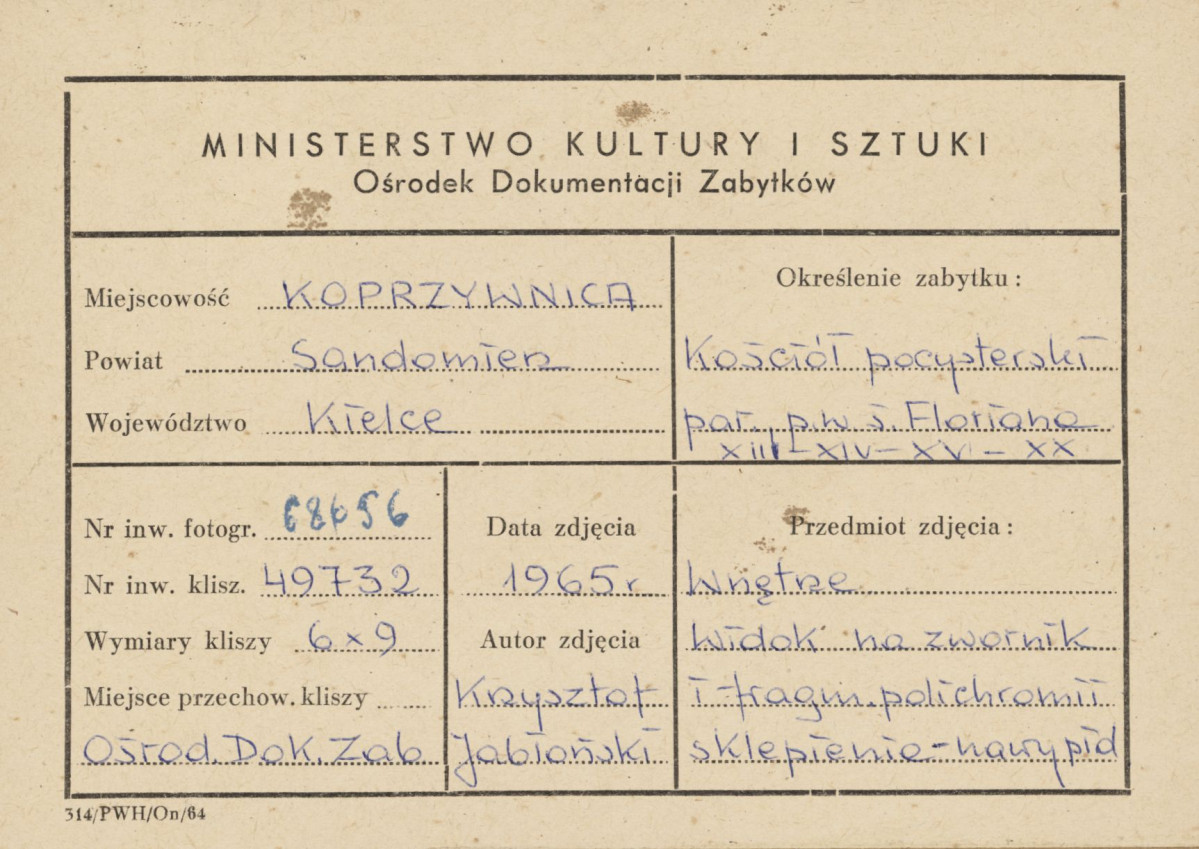 MINISTERSTWO KULTURY I SZTUKI
Ośrodek Dokumentacji Zabytków
Miejscowość KOPRZYWNICA
Powiat Sandomierz
Województwo Kielce
Określenie zabytku:
Kościół pocysterski
par. p.w ś. Floriana
XIII – XIV – XVI – XX
Nr inw. fotogr. 68656
Nr inw. klisz. 49732
Wymiary kliszy 6 x 9
Miejsce przechow. kliszy
Ośrod. Dok. Zab
Data zdjęcia
1965 r
Autor zdjęcia
Krzysztof
Jabłoński
Przedmiot zdjęcia:
Wnętrze
widok na zwornik
i fragm. polichromii
sklepienia – nawy płd
314/PWH/On/64